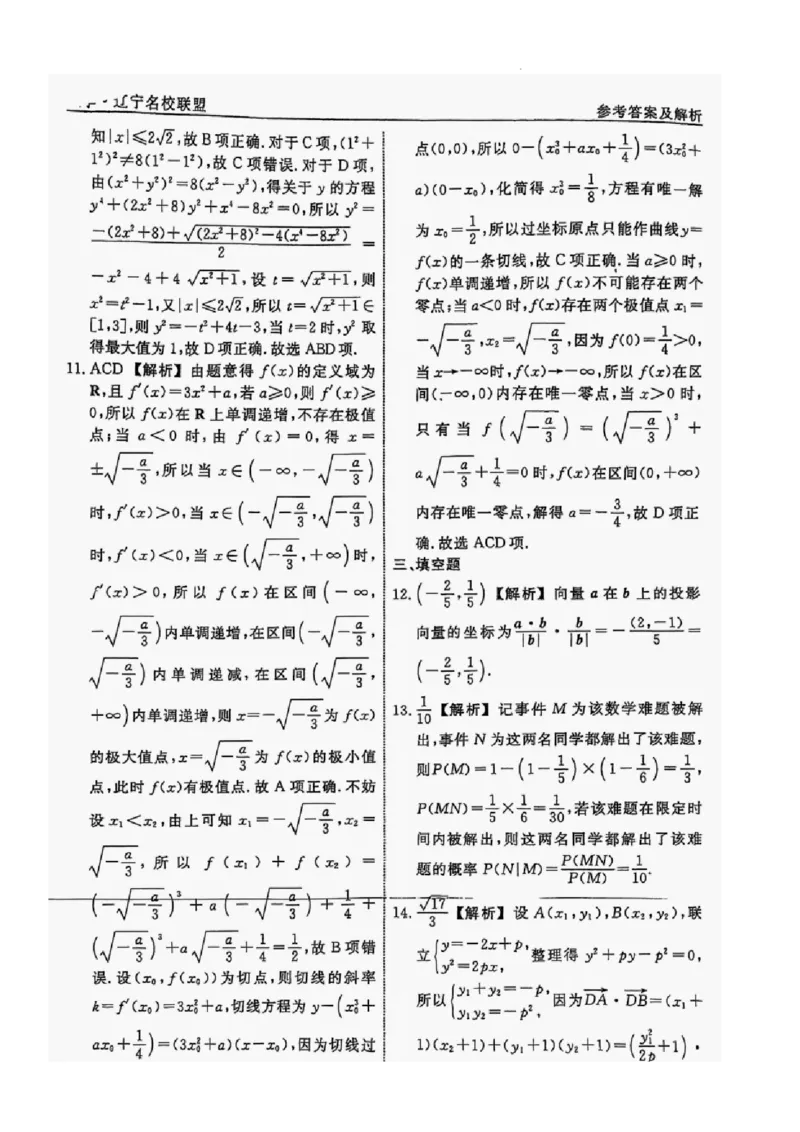 辽宁名校联盟
参考答案及解析
知|x|≤2√2,故B项正确.对于C项,(1²+
1²)²≠8(1²-1²),故C项错误.对于D项,
由(x²+y²)²=8(x²-y²),得关于y的方程
y⁴+(2x²+8)y²+x⁴-8x²=0,所以 y²=
\frac{-(2x²+8)+√((2x²+8)²-4(x⁴-8x²))}{2} =
-x²-4+4√(x²+1),设 t=√(x²+1),则
x²=t²-1,又|x|≤2√2,所以t=√(x²+1)∈
[1,3],则y²=-t²+4t-3,当t=2时,y²取
得最大值为1,故D项正确.故选ABD项.
11. ACD 【解析】由题意得 f(x)的定义域为
R,且 f′(x)=3x²+a,若a≥0,则 f′(x)≥
0,所以f(x)在R上单调递增,不存在极值
点;当 a<0 时,由 f′(x)=0,得 x=
±√(-a/3),所以当x∈(-∞,-√(-a/3))
时,f′(x)>0,当x∈(-√(-a/3),√(-a/3))
时,f′(x)<0,当x∈(√(-a/3),+∞)时,
f′(x)>0,所以 f(x)在区间(-∞,
-√(-a/3))内单调递增,在区间(-√(-a/3),
√(-a/3))内单调递减,在区间(√(-a/3),
+∞)内单调递增,则x=-√(-a/3)为f(x)
的极大值点,x=√(-a/3)为f(x)的极小值
点,此时f(x)有极值点.故A项正确.不妨
设x₁<x₂,由上可知x₁=-√(-a/3),x₂=
√(-a/3),所以 f(x₁)+f(x₂)=
(-√(-a/3))³+a(-√(-a/3))+1/4+
(√(-a/3))³+a√(-a/3)+1/4=1/2,故B项错
误.设(x₀,f(x₀))为切点,则切线的斜率
k=f′(x₀)=3x₀²+a,切线方程为y-(x₀³+
ax₀+1/4)=(3x₀²+a)(x-x₀),因为切线过
点(0,0),所以0-(x₀³+ax₀+1/4)=(3x₀²+
a)(0-x₀),化简得x₀³=1/8,方程有唯一解
为x₀=1/2,所以过坐标原点只能作曲线y=
f(x)的一条切线,故C项正确.当a≥0时,
f(x)单调递增,所以f(x)不可能存在两个
零点;当a<0时,f(x)存在两个极值点x₁=
-√(-a/3),x₂=√(-a/3),因为f(0)=1/4>0,
当x→-∞时,f(x)→-∞,所以f(x)在区
间(-∞,0)内存在唯一零点,当x>0时,
只有当 f(√(-a/3))=(√(-a/3))³+
a√(-a/3)+1/4=0时,f(x)在区间(0,+∞)
内存在唯一零点,解得a=-3/4,故D项正
确.故选ACD项.
三、填空题
12. (-2/5,1/5) 【解析】向量a在b上的投影
向量的坐标为\frac{a·b}{|b|}·\frac{b}{|b|}=-\frac{(2,-1)}{5}=
(-2/5,1/5).
13. 1/10 【解析】记事件M为该数学难题被解
出,事件N为这两名同学都解出了该难题,
则P(M)=1-(1-1/5)×(1-1/6)=1/3,
P(MN)=1/5×1/6=1/30,若该难题在限定时
间内被解出,则这两名同学都解出了该难
题的概率P(N|M)=\frac{P(MN)}{P(M)}=1/10.
14. √17/3 【解析】设A(x₁,y₁),B(x₂,y₂),联
立{y=-2x+p, y²=2px,整理得 y²+py-p²=0,
所以{y₁+y₂=-p, y₁y₂=-p²,因为\overrightarrow{DA}·\overrightarrow{DB}=(x₁+
1)(x₂+1)+(y₁+1)(y₂+1)=(\frac{y₁²}{2p}+1)·